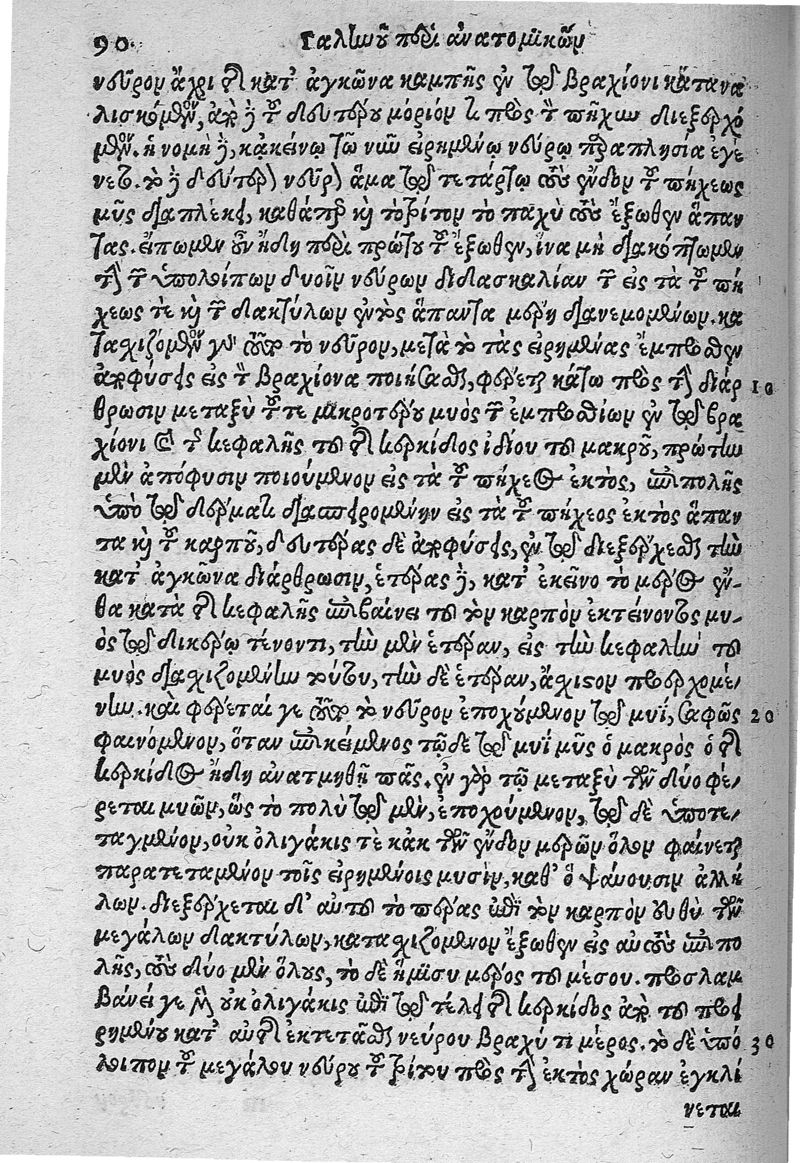 90. Γαλίωοῦ περὶ ἀνατομικῶν
νεῦρον ἄχρι τῆς κατ' ἀγκῶνα καμπῆς ἐν τῷ βραχίονι κατανα
λισκόμενον, ἀπὸ δὲ τοῦ δευτέρου μόριόν τι πρὸς τὸν πῆχυν διεξερχό
μενον. ἡ νομὴ δὲ, κἀκείνῳ τῷ νῦν εἰρημένῳ νεύρῳ παραπλησία ἐγέ
νετο. τὸ δὲ δεύτερον νεῦρον ἅμα τῷ τετάρτῳ τοὺς ἔνδον τοῦ πήχεως
μῦς διαπλέκει, καθάπερ καὶ τὸ τρίτον τὸ παχὺ τοὺς ἔξωθεν ἅπαν
τας. εἴπωμεν οὖν ἤδη περὶ πρώτου τοῦ ἔξωθεν, ἵνα μὴ διακόπτωμεν
τὴν τῶν ὑπολοίπων δυοῖν νεύρων διδασκαλίαν τῶν εἰς τὰ τοῦ πή
χεως τε καὶ τῶν δακτύλων ἐντὸς ἅπαντα μέρη διανεμομένων. κα
τασχιζόμενον γὰρ τοῦτο τὸ νεῦρον, μετὰ τὸ τὰς εἰρημένας ἔμπροσθεν
ἀποφύσεις εἰς τὸν βραχίονα ποιήσασθαι, φέρεται κάτω πρὸς τὴν διάρ 10
θρωσιν μεταξὺ τοῦ τε μικροτέρου μυὸς τῶν ἐμπροσθίων ἐν τῷ βρα
χίονι καὶ τῆς κεφαλῆς τοῦ τῆς κερκίδος ἰδίου τοῦ μακροῦ, πρώτην
μὲν ἀπόφυσιν ποιούμενον εἰς τὰ τοῦ πήχεος ἐκτὸς, ἐπιπολῆς
ὑπὸ τῷ δέρματι διασπειρομένην εἰς τὰ τοῦ πήχεος ἐκτὸς ἅπαν
τα καὶ τοῦ καρποῦ, δευτέρας δὲ ἀποφύσεις, ἐν τῷ διεξέρχεσθαι τὴν
κατ' ἀγκῶνα διάρθρωσιν, ἑτέρας δὲ, κατ' ἐκεῖνο τὸ μέρος ἔν-
θα κατὰ τῆς κεφαλῆς ἐπιβαίνει τοῦ τὸν καρπὸν ἐκτείνοντος μυ-
ὸς τῷ δικρόῳ τένοντι, τὴν μὲν ἑτέραν, εἰς τὴν κεφαλὴν τοῦ
μυὸς διασχιζομένην τούτου, τὴν δὲ ἑτέραν, ἄχιστον προερχομέ-
νην. καὶ φέρεταί γε τοῦτο τὸ νεῦρον ἐποχύμενον τῷ μυῒ, σαφῶς 20
φαινόμενον, ὅταν ἐπικείμενος τῷδε τῷ μυῒ μῦς ὁ μακρὸς ὁ τῆς
κερκίδος ἤδη ἀνατμηθῇ πᾶς. ἐν γὰρ τῷ μεταξὺ τῶν δύο φέ-
ρεται μυῶν, ὡς τὸ πολὺ τῷ μὲν, ἐποχούμενον, τῷ δὲ ὑποτε-
ταγμένον, οὐκ ὀλιγάκις τὲ κἀκ τῶν ἔνδον μερῶν ὅλον φαίνεται
παρατεταμένον τοῖς εἰρημένοις μυσὶν, καθ' ὃ ψαύουσιν ἀλλή
λων. διεξέρχεται δ' αὐτοῦ τὸ πέρας ἐπὶ τὸν καρπὸν εὐθὺ τῶν
μεγάλων δακτύλων, κατασχιζόμενον ἔξωθεν εἰς αὐτοὺς ἐπιπο
λῆς, τοὺς δύο μὲν ὅλους, τὸ δὲ ἥμισυ μέρος τοῦ μέσου. προσλαμ
βάνει γε μὴν οὐκ ὀλιγάκις ἐπὶ τῷ τέλει τῆς κερκίδος ἀπὸ τοῦ προει
ρημένου κατ' αὐτῆς ἐκτετάσθαι νεύρου βραχύ τι μέρος. τὸ δὲ ὑπό 30
λοιπον τοῦ μεγάλου νεύρου τοῦ τρίτου πρὸς τὴν ἐκτὸς χώραν ἐγκλί
νεται